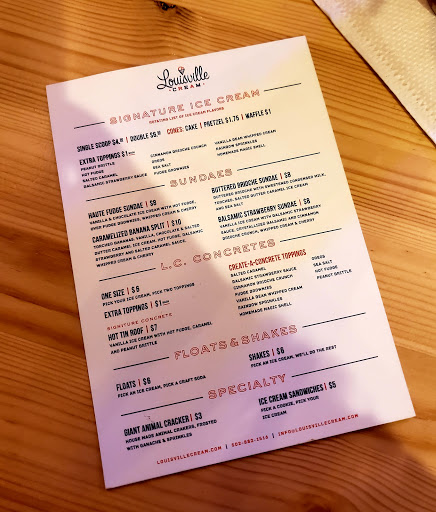 Louisville
CREAM
SIGNATURE ICE CREAM
ROTATING LIST OF ICE CREAM FLAVORS
SINGLE SCOOP $4.50 | DOUBLE $6.50 CONES: CAKE | PRETZEL $1.75 | WAFFLE $1
EXTRA TOPPINGS $1
PEANUT BRITTLE
HOT FUDGE
SALTED CARAMEL
BALSAMIC STRAWBERRY SAUCE
CINNAMON BRIOCHE CRUNCH
OREOS
SEA SALT
FUDGE BROWNIES
VANILLA BEAN WHIPPED CREAM
RAINBOW SPRINKLES
HOMEMADE MAGIC SHELL
SUNDAES
HAUTE FUDGE SUNDAE | $8
VANILLA & CHOCOLATE ICE CREAM WITH HOT FUDGE,
OVER FUDGE BROWNIES, WHIPPED CREAM & CHERRY
CARAMELIZED BANANA SPLIT | $10
TORCHED BANANAS, VANILLA, CHOCOLATE & SALTED
BUTTER CARAMEL ICE CREAM, HOT FUDGE, BALSAMIC
STRAWBERRY AND SALTED CARAMEL SAUCE,
WHIPPED CREAM & CHERRY
BUTTERED BRIOCHE SUNDAE | $8
BUTTERED BRIOCHE WITH SWEETENED CONDENSED MILK,
TORCHED, SALTED BUTTER CARAMEL ICE CREAM
AND SEA SALT
BALSAMIC STRAWBERRY SUNDAE | $8
VANILLA ICE CREAM WITH BALSAMIC STRAWBERRY
SAUCE, CRYSTALLIZED BALSAMIC AND CINNAMON
BRIOCHE CRUNCH, WHIPPED CREAM & CHERRY
L.C. CONCRETES
ONE SIZE | $6
PICK YOUR ICE CREAM, PICK TWO TOPPINGS
EXTRA TOPPINGS | $1
SIGNATURE CONCRETE
HOT TIN ROOF | $7
VANILLA ICE CREAM WITH HOT FUDGE, CARAMEL
AND PEANUT BRITTLE
CREATE-A-CONCRETE TOPPINGS
SALTED CARAMEL
BALSAMIC STRAWBERRY SAUCE
CINNAMON BRIOCHE CRUNCH
FUDGE BROWNIES
VANILLA BEAN WHIPPED CREAM
RAINBOW SPRINKLES
HOMEMADE MAGIC SHELL
OREOS
SEA SALT
HOT FUDGE
PEANUT BRITTLE
FLOATS & SHAKES
FLOATS | $6
PICK AN ICE CREAM, PICK A CRAFT SODA
SHAKES | $6
PICK AN ICE CREAM, WE'LL DO THE REST
SPECIALTY
GIANT ANIMAL CRACKER | $3
HOUSE MADE ANIMAL CRAKERS, FROSTED
WITH GANACHE & SPRINKLES
ICE CREAM SANDWICHES | $5
PICK A COOKIE, PICK YOUR
ICE CREAM
LOUISVILLECREAM.COM | 502-882-1516 | INFO@LOUISVILLECREAM.COM